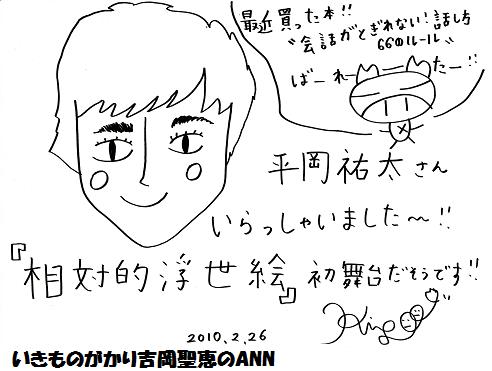 最近買った本!!
"会話がとぎれない!話し方
66のルール"
ばーれーたー!!
平岡祐太さん
いらっしゃいました〜!!
『相対的浮世絵』初舞台だそうです!!
2010.2.26
いきものがかり吉岡聖恵のANN